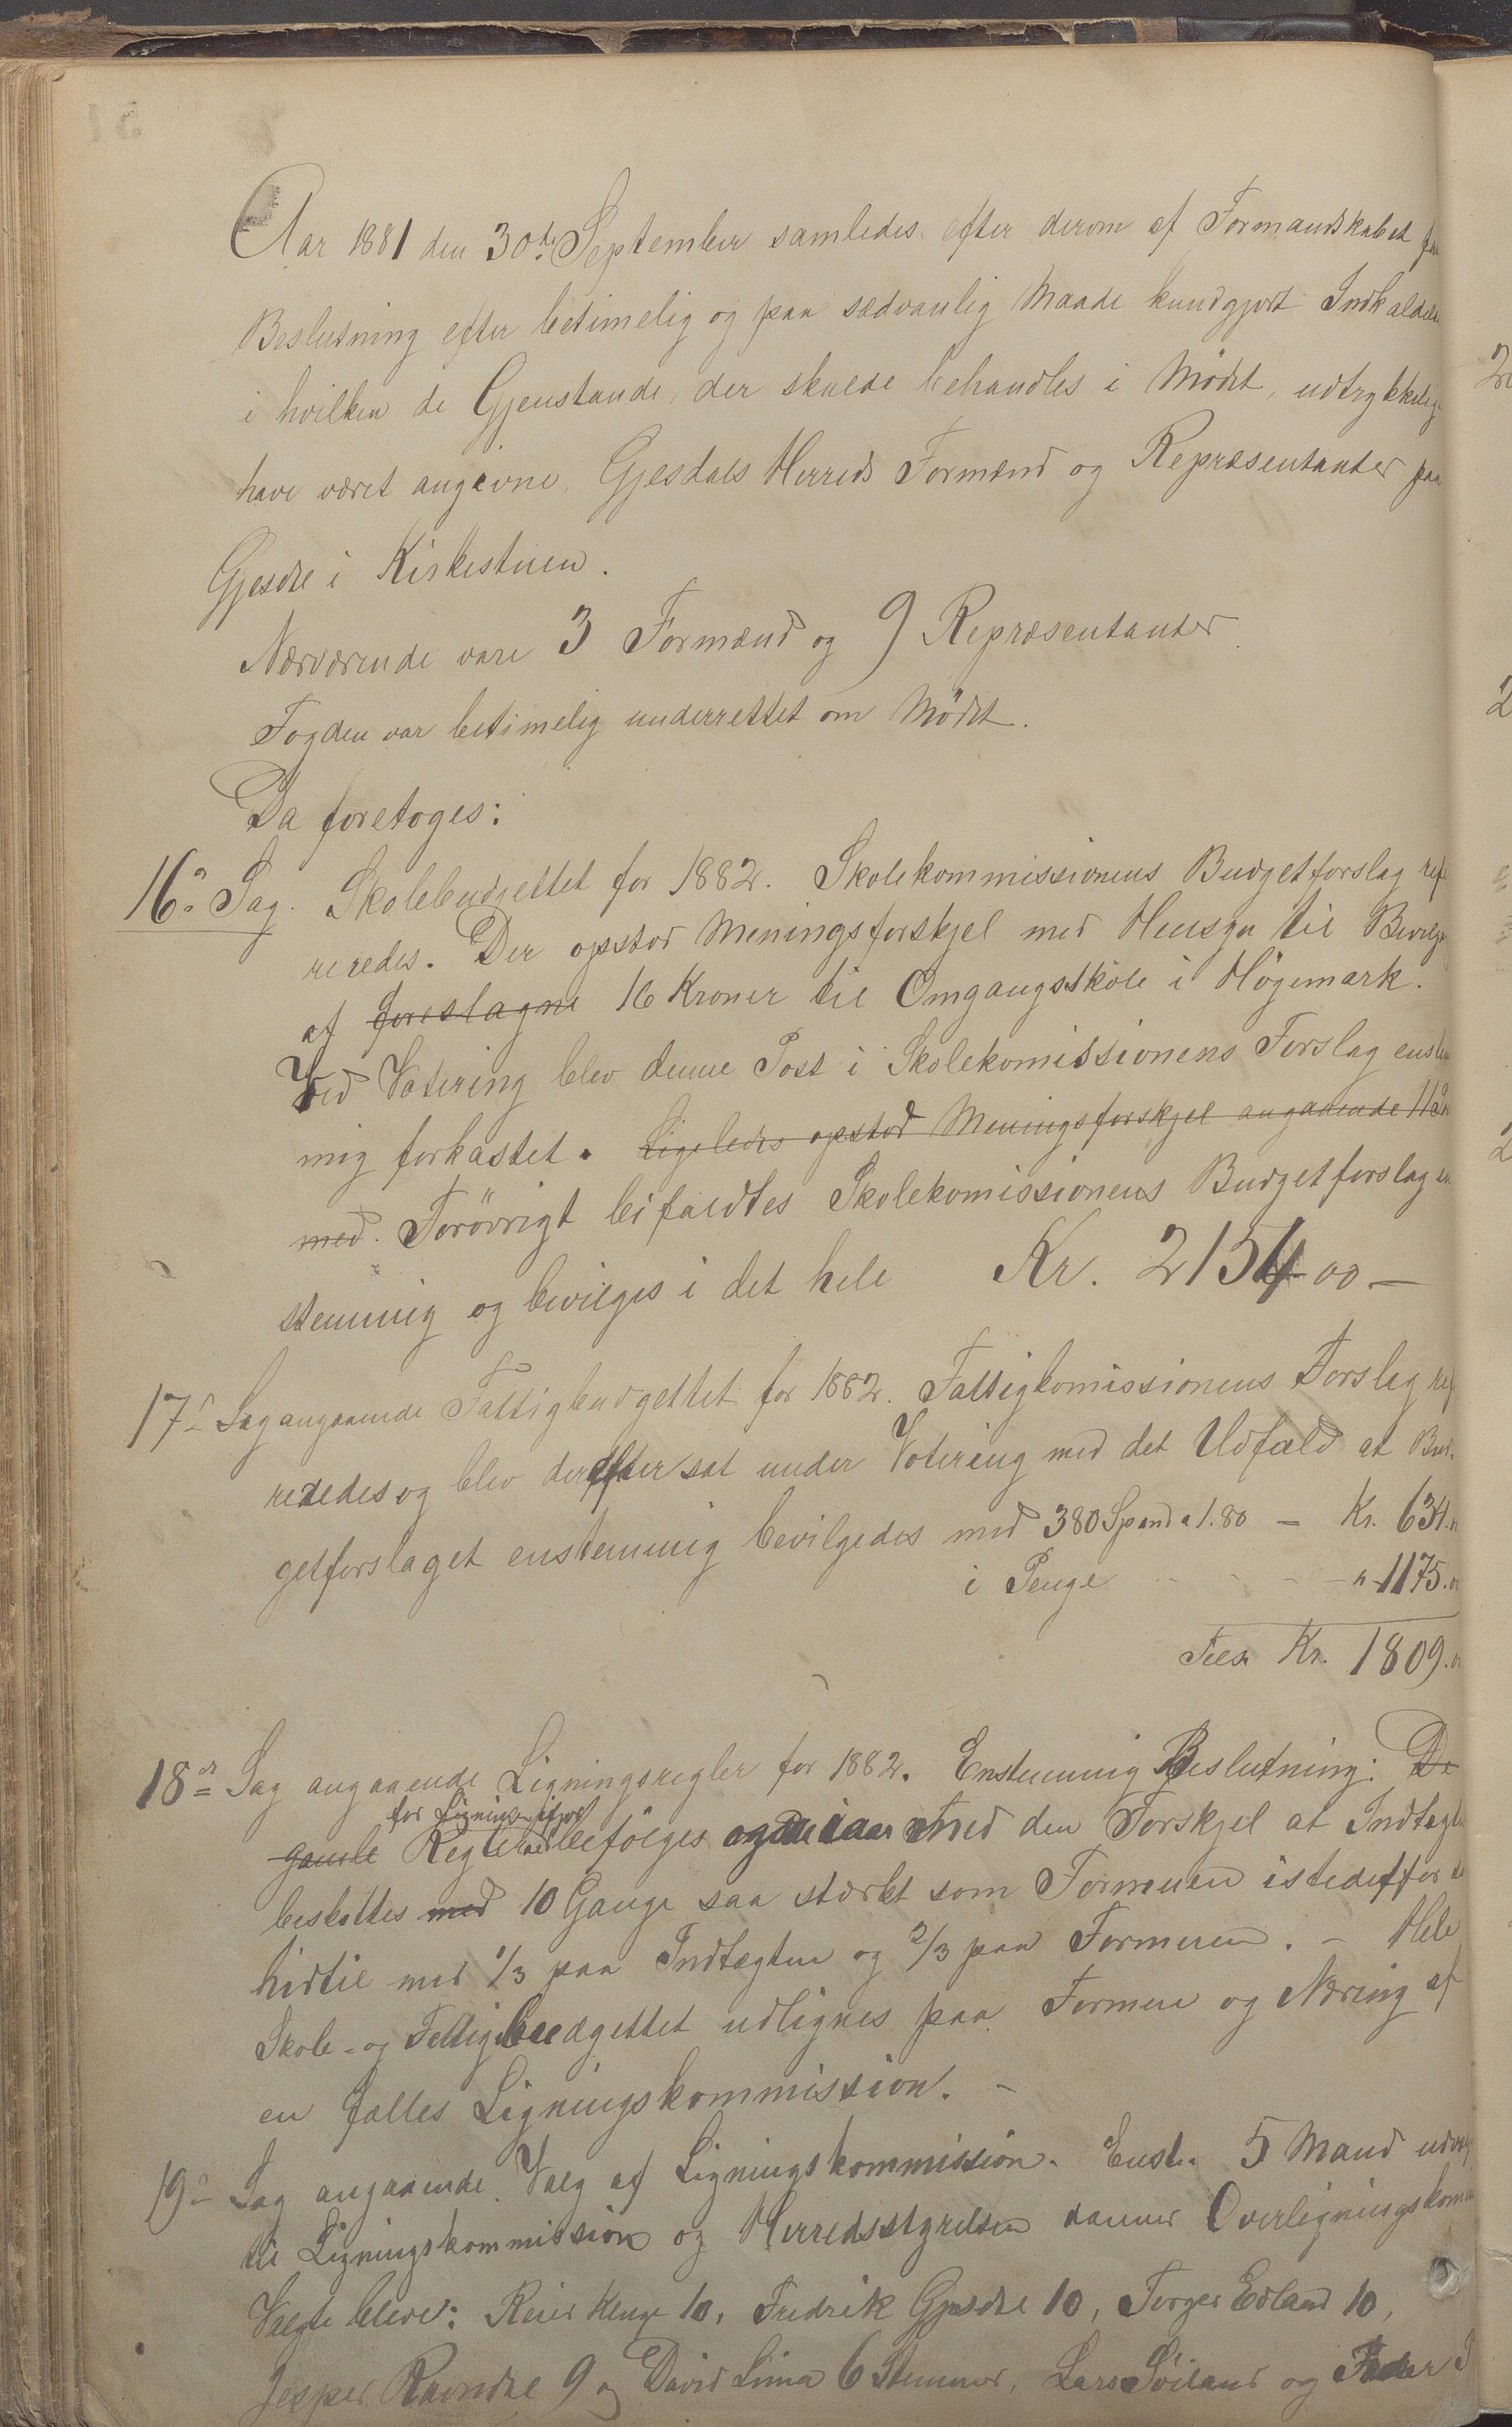 Aar 1881 den 30de September samledes efter derom af Formandskabet
Beslutning efter betimelig og paa sædvanlig Maade kundgjort Indkaldel
i hvilken de Gjenstande, der skulde behandles i Mødet, udtrykkelig
have været angivne, Gjesdals Herreds Formænd og Repræsentanter paa
Gjesdal i Kirkestuen.
Nærværende vare 3 Formænd og 9 Repræsentanter
Fogden var betimelig underrettet om Mødet.
Da foretoges:
16de Sag. Skolebudgettet for 1882. Skolekommissionens Budgetforslag ref
reredes. Der opstod Meningsforskjel med Hensyn til Bevilgn
af foreslagne 16 Kroner til Omgangsskole i Høgemark.
Ved Votering blev denne Post i Skolekomissionens Forslag enstem
mig forkastet. Ligeledes opstod Meningsforskjel angaaende
med. Forøvrigt bifaldtes Skolekomissionens Budgetforslag en
stemmig og bevilges i det hele Kr. 2154 00 —
17de Sag angaaende Fattigbudgettet for 1882. Fattigkomissionens Forslag ref
reredes og blev derefter sat under Votering med det Udfald at Bud-
getforslaget enstemmig bevilgedes med 380 Spand a 1.80 — Kr. 634.
i Penge - - - - " 1175.
Tils. Kr. 1809.
18de Sag angaaende Ligningsregler for 1882. Enstemmig Beslutning: De
for Ligning ifjor
gamle Regler befølges med den Forskjel at Indtægten
beskattes med 10 Gange saa stærkt som Formuen istedetfor
hidtil med 1/3 paa Indtægten og 2/3 paa Formuen. — Hele
Skole- og Fattigbudgettet udlignes paa Formue og Næring af
en fælles Ligningskommission. —
19de Sag angaaende Valg af Ligningskommission. Enst. 5 Mand udvælg
til Ligningskommission og Herredsstyrelsen danner Overligningskom
Valgte bleve: Reier Kluge 10, Fredrik Gjesdal 10, Torger Edland 10,
Jesper Ravndal 9 og David Lima 6 Stemmer, Lars Søiland og Peder